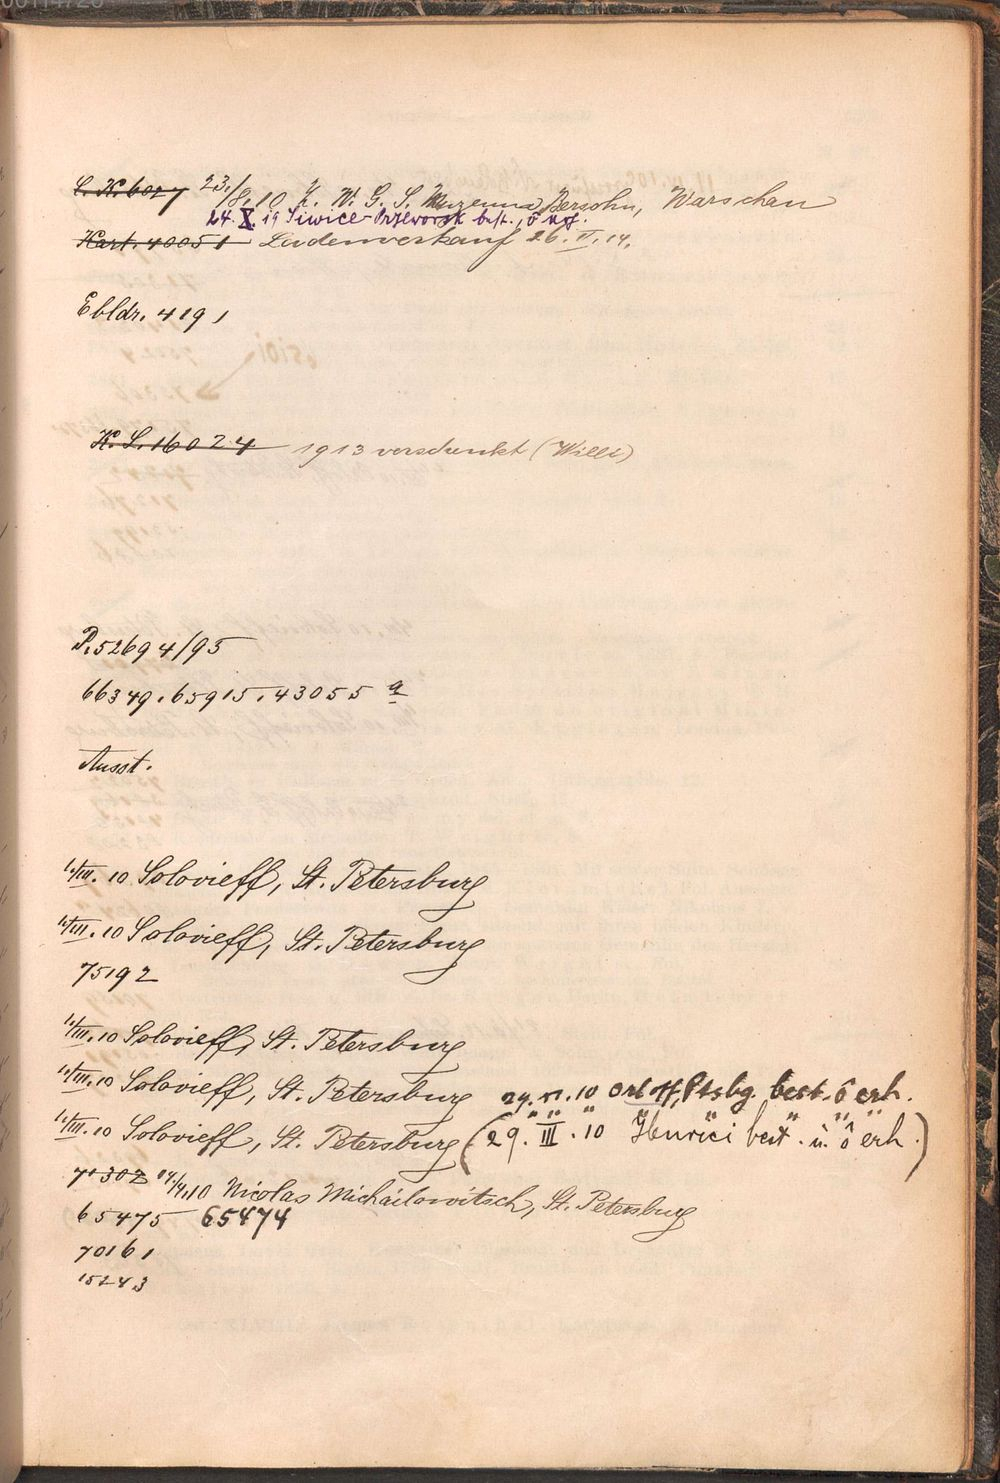 L. K. 6027 23./8.10 K. W. G. S. Muzeum Bersohn, Warschau
24. X. 19 Siwice-Przeworsk best., ô
Kart. 40051 Ladenverkauf 26. II. 14.
Ebldr. 4191
K. S. 16024 1913 verschenkt (Willi)
P. 52694/95
66349. 65915. 43055 a
Ausst.
1./III. 10 Solovieff, St. Petersburg
1./III. 10 Solovieff, St. Petersburg
75192
1./III. 10 Solovieff, St. Petersburg
1./III. 10 Solovieff, St. Petersburg 29. VI. 10 Orloff, Ptsbg. best. ô erh.
1./III. 10 Solovieff, St. Petersburg (29. III. 10 Henrici best. u. ô erh.)
70302 04/4.10 Nicolas Michailowitsch, St. Petersburg
65475 65474
70161
15243